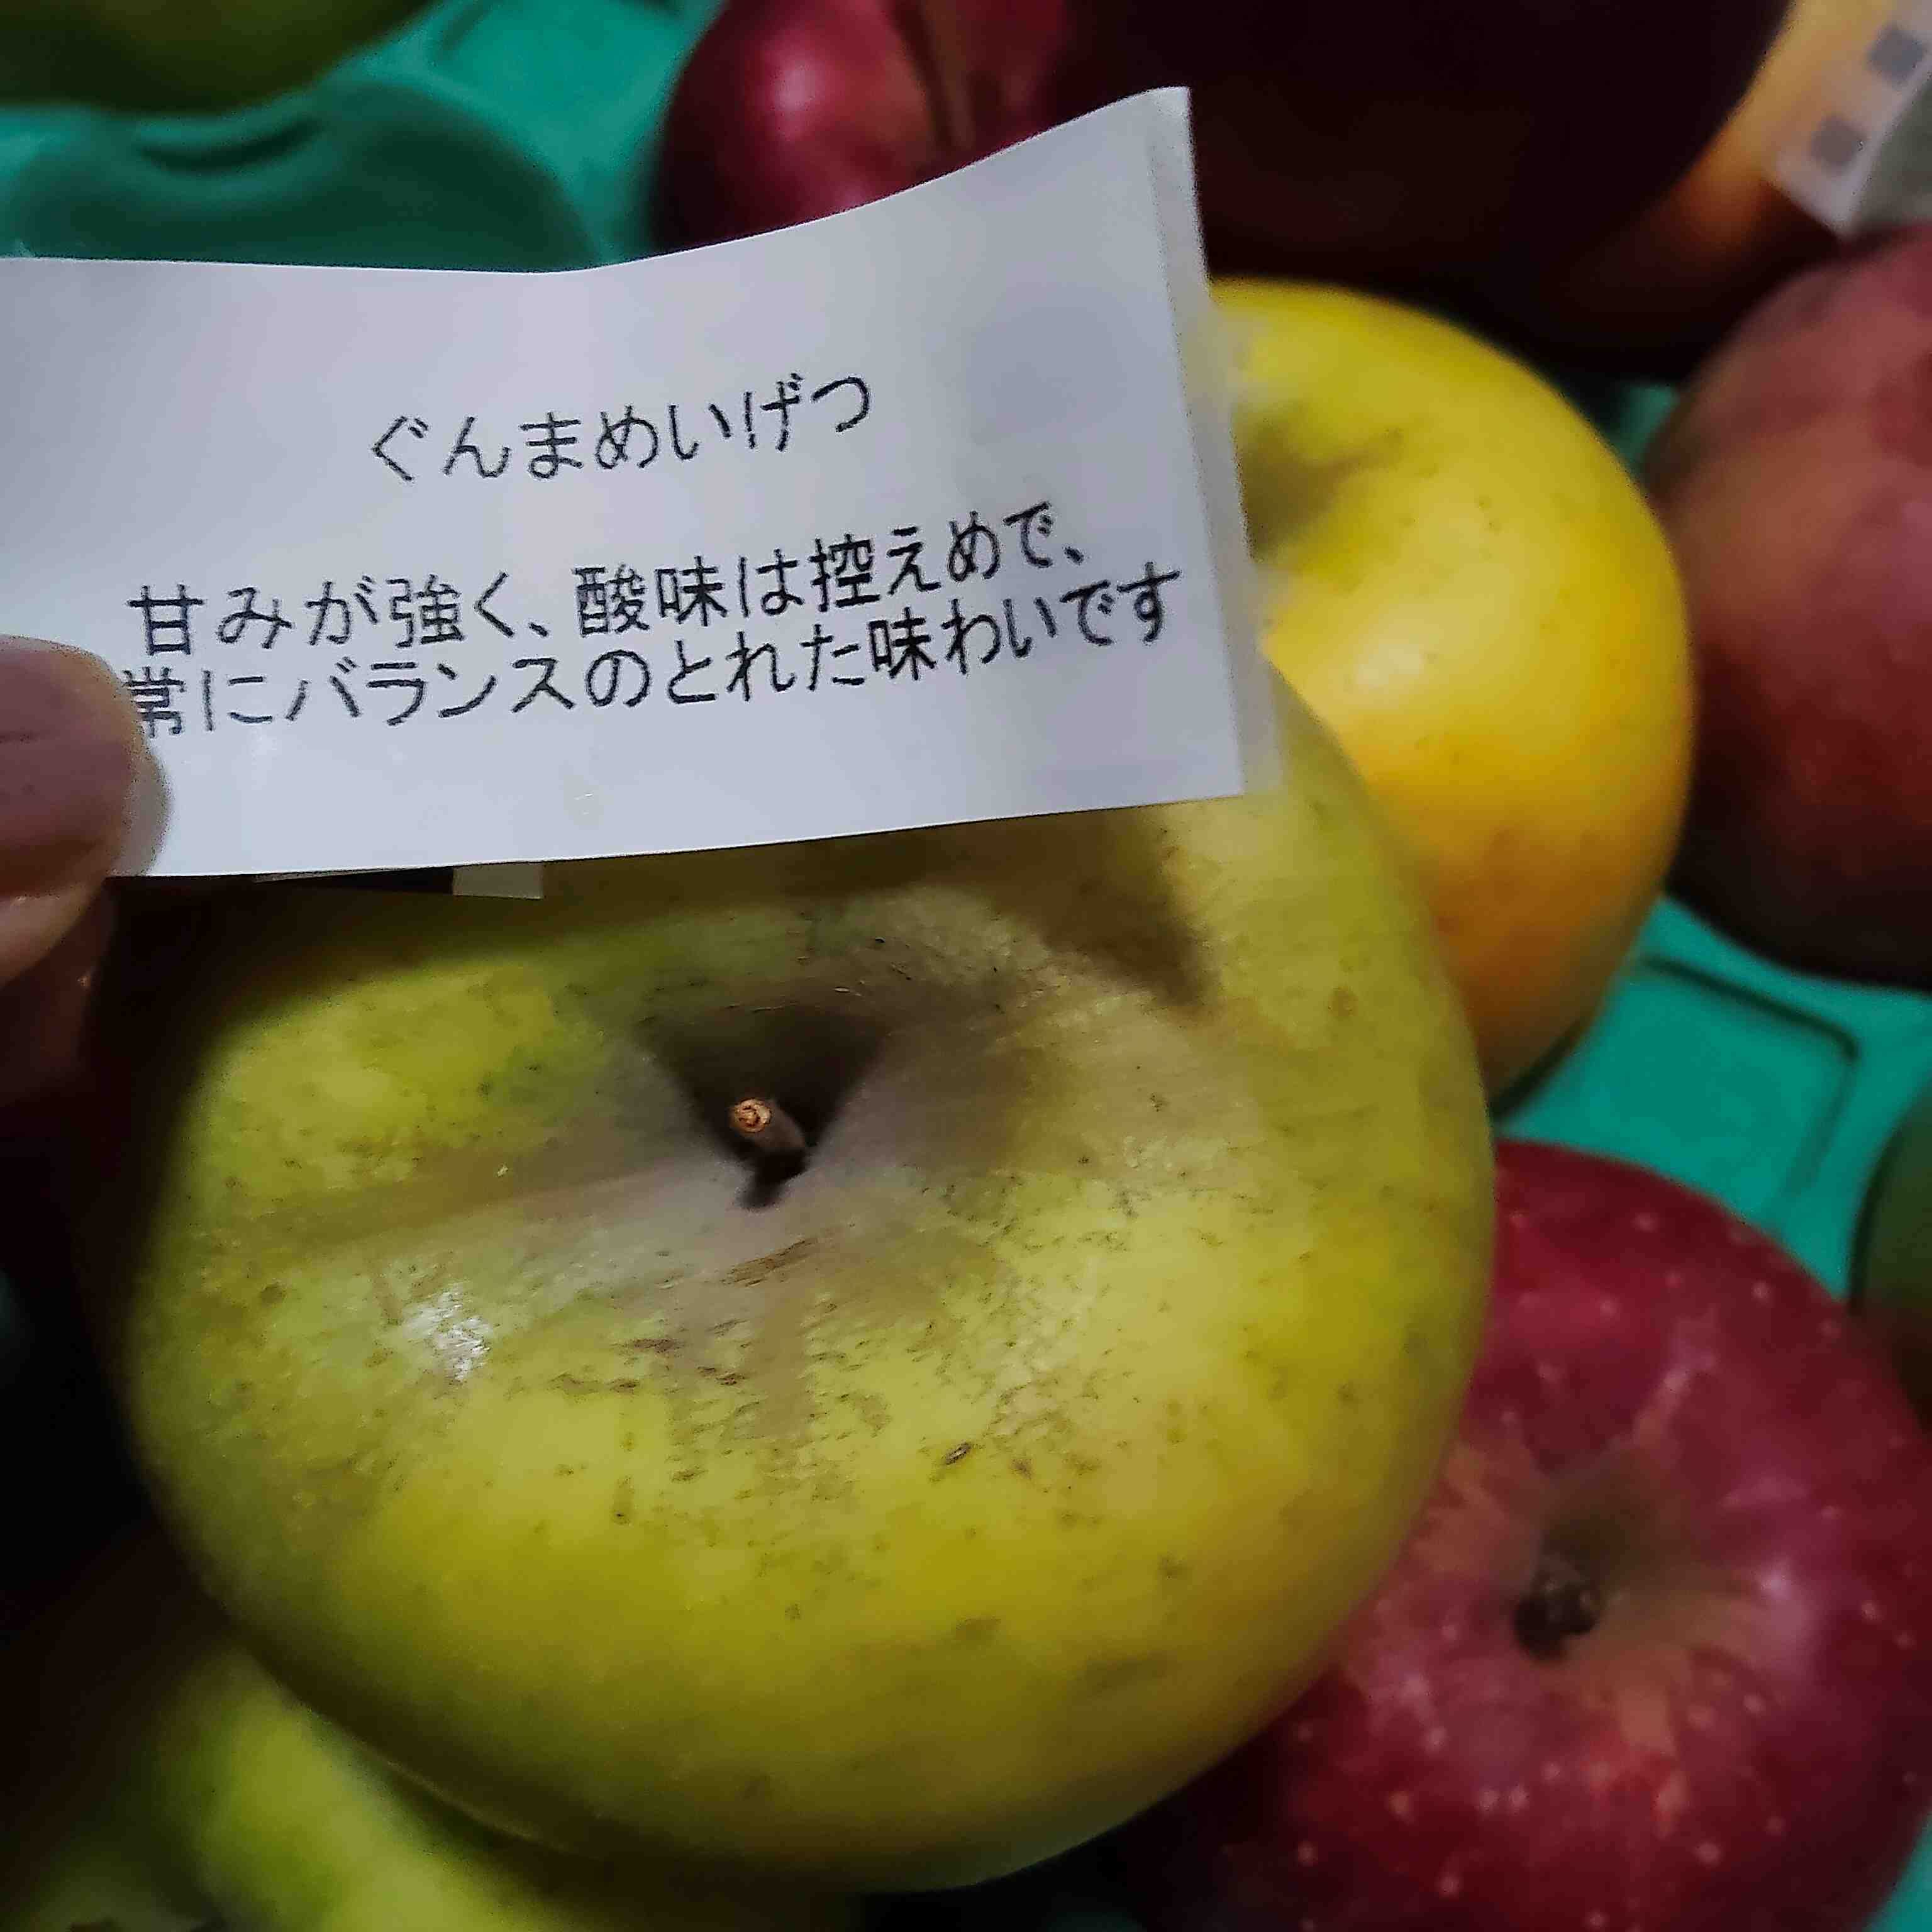 ぐんまめいげつ
甘みが強く、酸味は控えめで、
常にバランスのとれた味わいです